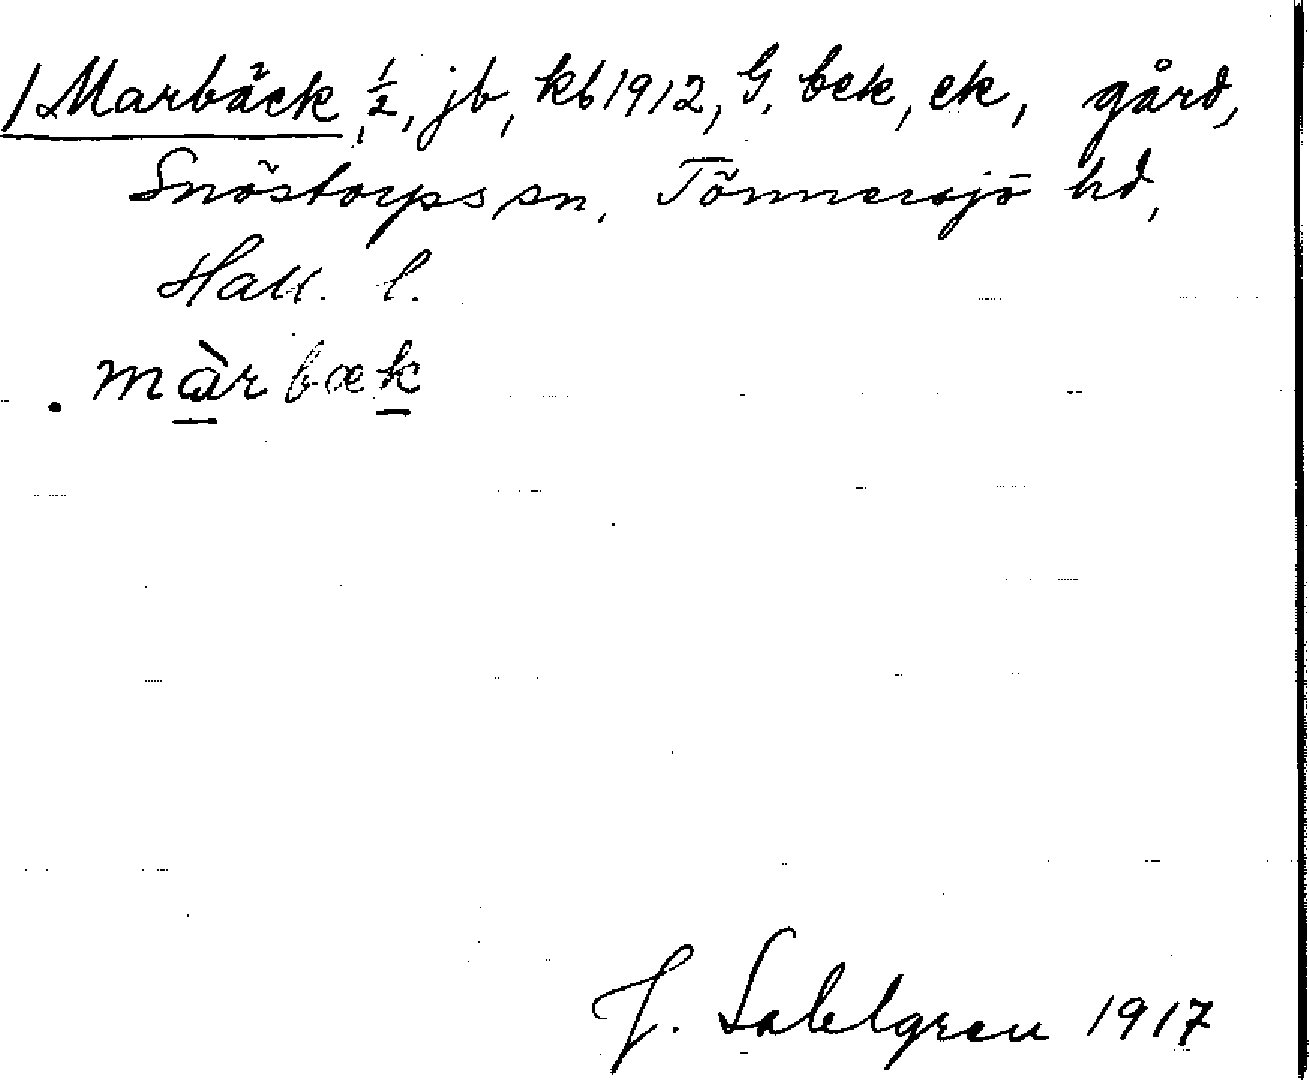 /Marbäck, 1/2, jb, kb 1912, G. bek, ek, gård,
Snöstorps sn, Tönnersjö hd,
Hall. l.
. màrbæk
J. Sahlgren 1917